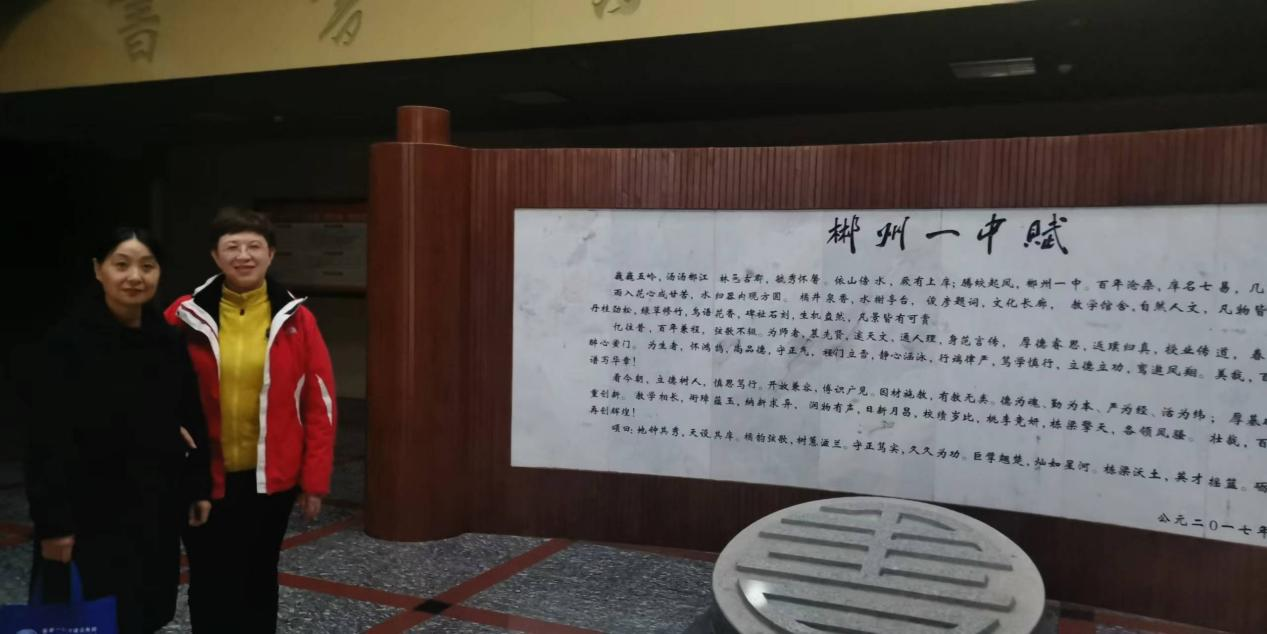 書
郴州一中赋
巍巍五岭，汤汤郴江 林邑古郡，毓秀怀馨。依山傍水，厥有上庠；腾蛟起凤，郴州一中。百年沧桑，庠名七易，几
雨入花心成甘苦，水归器内现方圆。 橘井泉香，水榭亭台， 彦题词，文化长廊， 教学馆舍，自然人文， 凡物皆
丹桂劲松，绿草修竹，鸟语花香，碑社石刻，生机盎然，凡景皆有可赏
忆往昔，百年兼程，弦歌不辍。为师者，慕先贤，述天文，通人理，身范言传， 厚德睿思，返璞归真，授业传道， 春
醉心黉门。 为生者，怀鸿鹄，尚品德，守正气， 程门立雪，静心涵泳，行端律严，笃学慎行，立德立功，鸾翔凤翔。美哉，百
谱写华章！
看今朝，立德树人，慎思笃行。开放兼容，博识广见。因材施教，有教无类。德为魂、勤为本、严为经、活为纬； 厚基
重创新。 教学相长，衔璋蕴玉，纳新求异， 润物有声，日新月昌，校绩岁比，桃李竞妍，栋梁擎天，各领风骚。 壮哉，百
再创辉煌！
颂曰：地钟其秀，天设其庠。橘韵弦歌，树蕙滋兰。守正笃实，久久为功。巨擘翘楚，灿如星河。栋梁沃土，英才摇篮。砺
公元二〇一七年